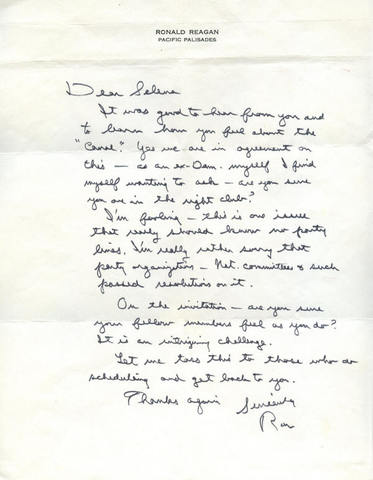 RONALD REAGAN
PACIFIC PALISADES
Dear Selena
It was good to hear from you and
to learn how you feel about the
"Canal". Yes we are in agreement on
this — as an ex-Dem. myself I find
myself wanting to ask — are you sure
you are in the right club?
I'm fooling — this is one issue
that really should know no party
lines. I'm really rather sorry that
party organizations — Nat. committees & such
passed resolutions on it.
On the invitation — are you sure
your fellow members feel as you do?
It is an intriguing challenge.
Let me toss this to those who do
scheduling and get back to you.
Thanks again Sincerely
Ron